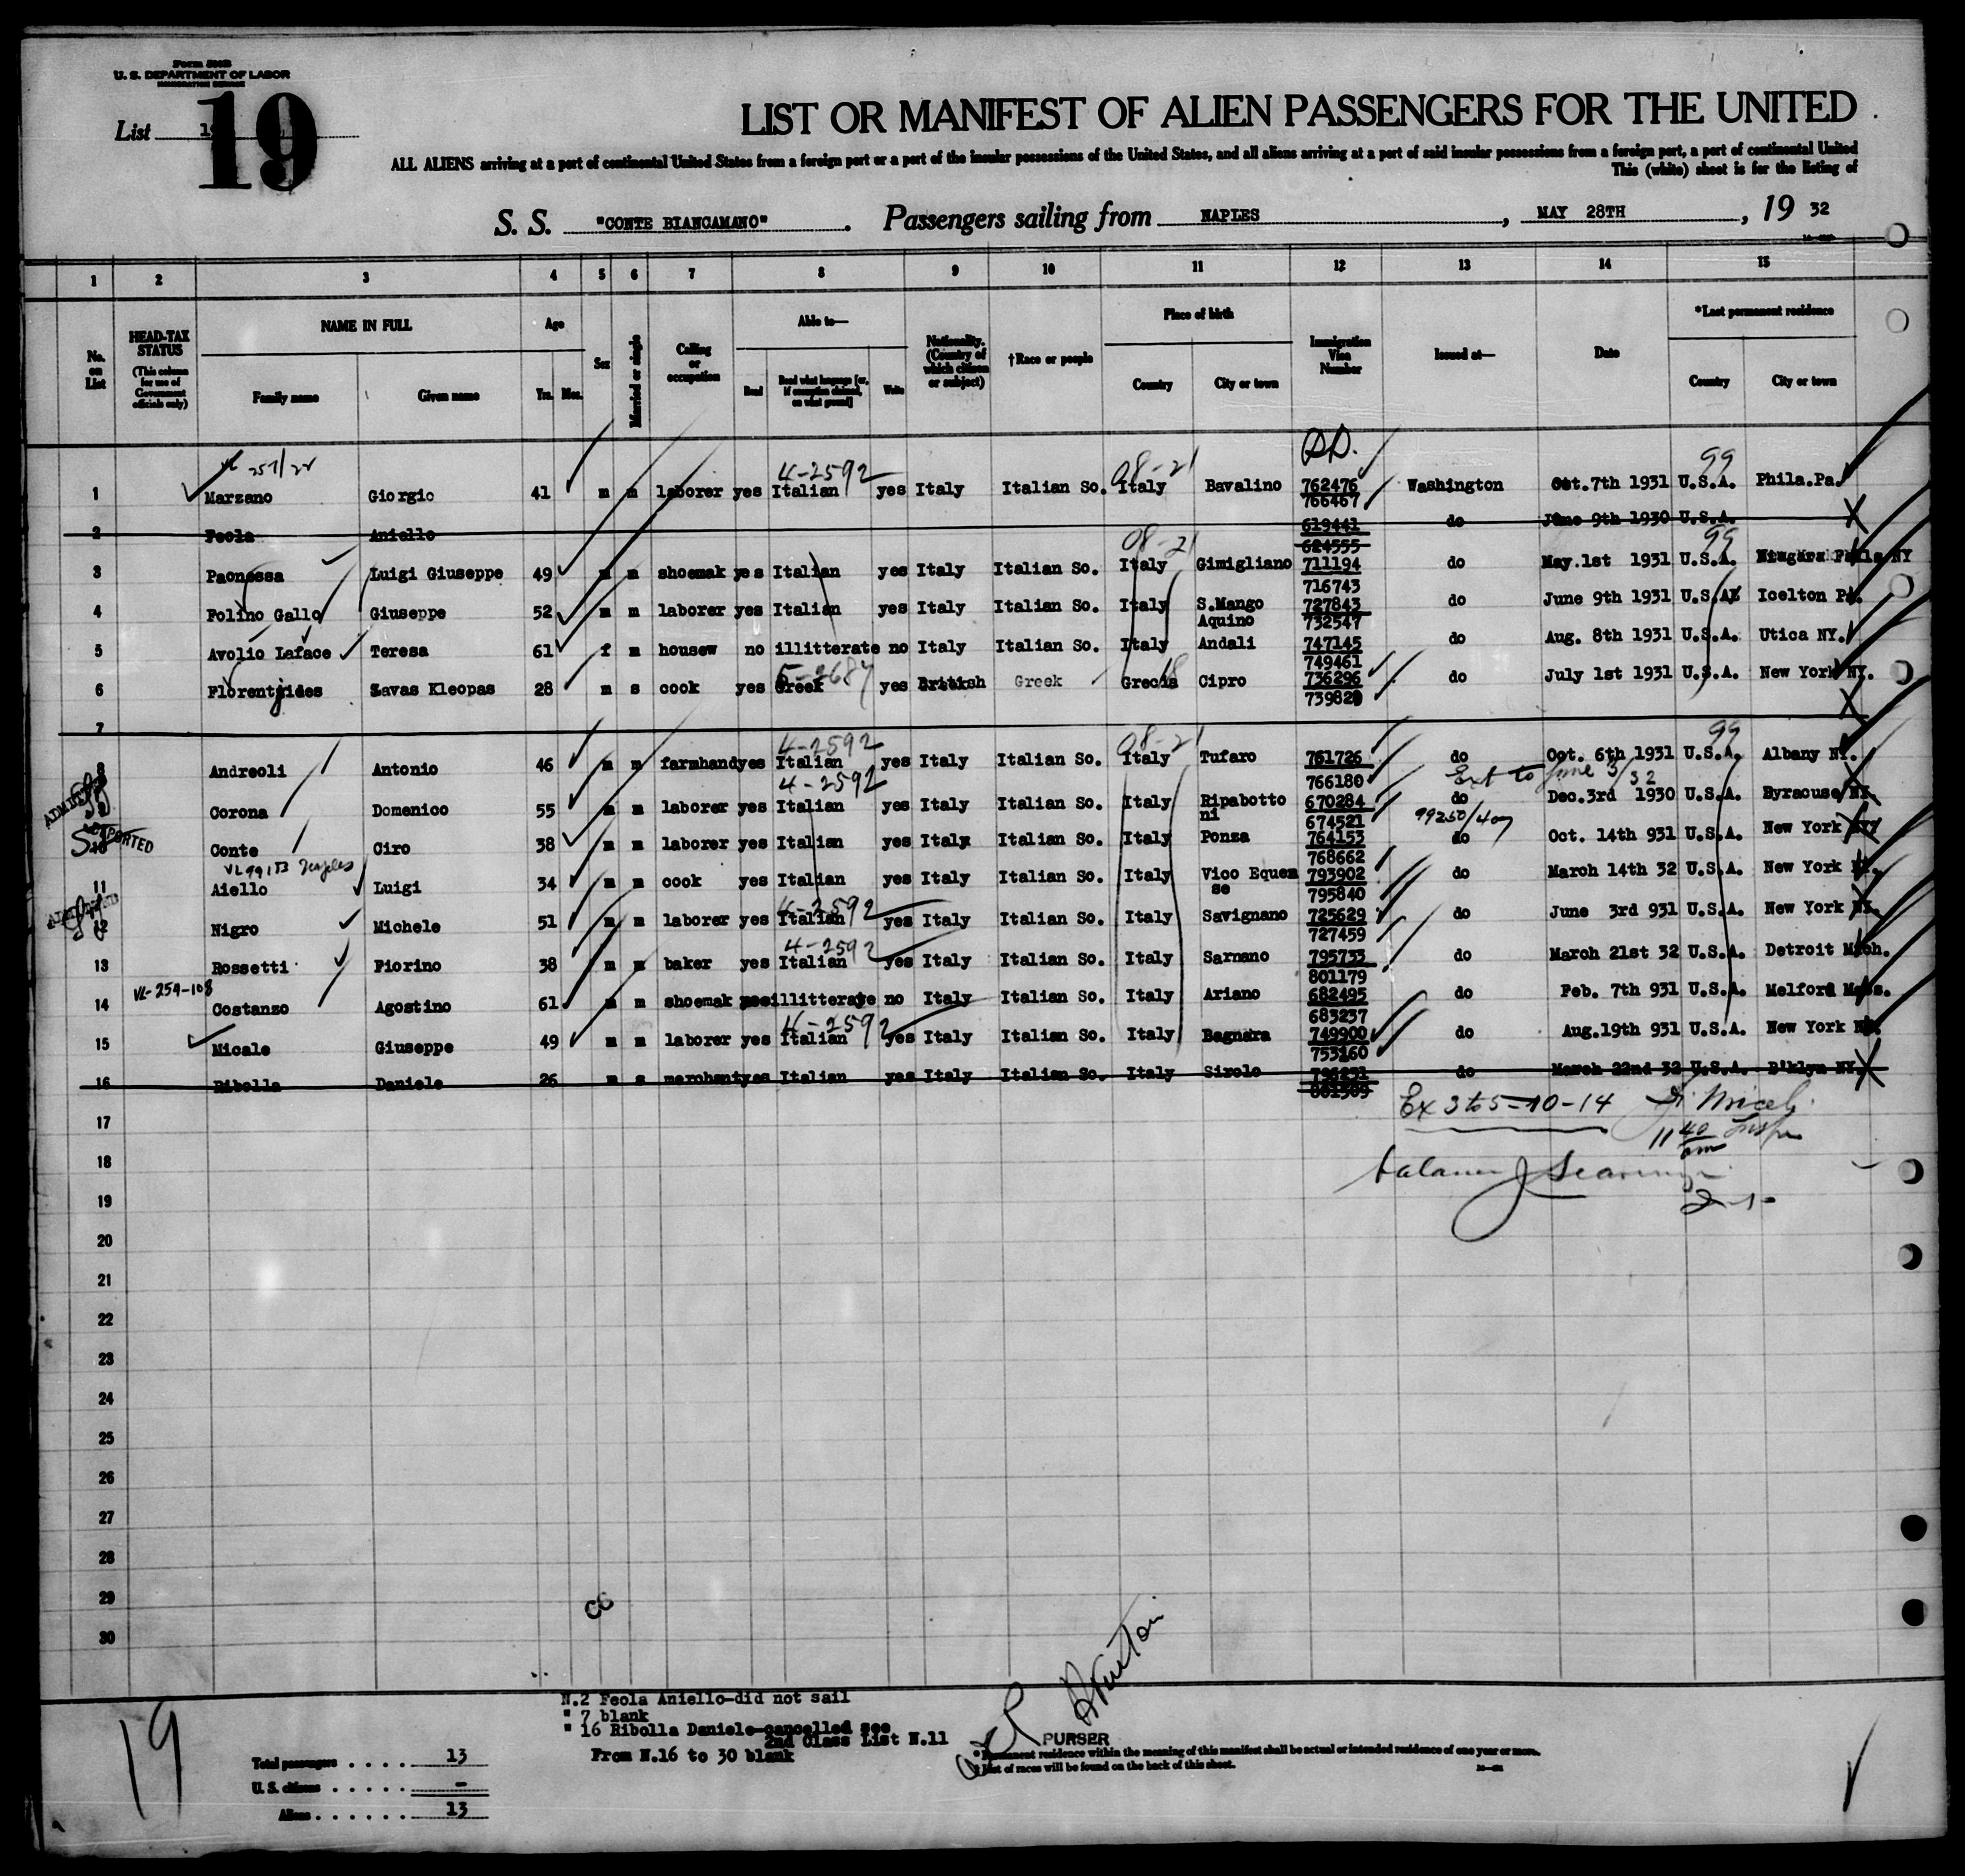 Form 500B
U. S. DEPARTMENT OF LABOR
IMMIGRATION SERVICE
List 19
19
LIST OR MANIFEST OF ALIEN PASSENGERS FOR THE UNITED
ALL ALIENS arriving at a port of continental United States from a foreign port or a port of the insular possessions of the United States, and all aliens arriving at a port of said insular possessions from a foreign port, a port of continental United
This (white) sheet is for the listing of
S. S. "CONTE BIANCAMANO" . Passengers sailing from NAPLES , MAY 28TH , 19 32
1 2 3 4 5 6 7 8 9 10 11 12 13 14 15
No. on List
HEAD-TAX STATUS (This column for use of Government officials only)
NAME IN FULL Family name Given name
Age Yrs. Mos.
Sex
Married or single
Calling or occupation
Able to— Read Read what language [or, if exemption claimed, on what ground] Write
Nationality. (Country of which citizen or subject)
†Race or people
Place of birth Country City or town
Immigration Visa Number
Issued at—
Date
*Last permanent residence Country City or town
257/22 4-2592 08-21 99
1 Marzano Giorgio 41 m m laborer yes Italian yes Italy Italian So. Italy Bavalino 762476 766467 Washington Oct.7th 1931 U.S.A. Phila.Pa.
2 Feola Aniello 619441 624555 do June 9th 1930 U.S.A.
08-21 99
3 Paonessa Luigi Giuseppe 49 m m shoemak yes Italian yes Italy Italian So. Italy Gimigliano 711194 716743 do May.1st 1931 U.S.A. Niagara Falls NY
4 Folino Gallo Giuseppe 52 m m laborer yes Italian yes Italy Italian So. Italy S.Mango Aquino 727843 732547 do June 9th 1931 U.S.A. Icelton Pa.
5 Avolio Laface Teresa 61 f m housew no illitterate no Italy Italian So. Italy Andali 747145 749461 do Aug. 8th 1931 U.S.A. Utica NY.
6 Florentzides Savas Kleopas 28 m s cook yes Greek yes British Greek Grecia Cipro 736296 739820 do July 1st 1931 U.S.A. New York NY.
7
4-2592 08-21 99
8 Andreoli Antonio 46 m m farmhand yes Italian yes Italy Italian So. Italy Tufaro 761726 766180 do Oct. 6th 1931 U.S.A. Albany NY.
4-2592 Ext to June 3/32
Corona Domenico 55 m m laborer yes Italian yes Italy Italian So. Italy Ripabotto ni 670284 674521 do Dec.3rd 1930 U.S.A. Syracuse NY.
99250/407
10 Conte Ciro 38 m m laborer yes Italian yes Italy Italian So. Italy Ponza 764153 768662 do Oct. 14th 931 U.S.A. New York NY
11 Aiello Luigi 34 m m cook yes Italian yes Italy Italian So. Italy Vico Equen se 793902 795840 do March 14th 32 U.S.A. New York NY.
4-2592
12 Nigro Michele 51 m m laborer yes Italian yes Italy Italian So. Italy Savignano 725629 727459 do June 3rd 931 U.S.A. New York NY.
4-2592
13 Rossetti Fiorino 38 m m baker yes Italian yes Italy Italian So. Italy Sarnano 795733 801179 do March 21st 32 U.S.A. Detroit Mich.
VL-259-108
14 Costanzo Agostino 61 m m shoemak illitterate no Italy Italian So. Italy Ariano 682495 683237 do Feb. 7th 931 U.S.A. Melford Mass.
4-2592
15 Micale Giuseppe 49 m m laborer yes Italian yes Italy Italian So. Italy Bagnara 749900 753160 do Aug.19th 931 U.S.A. New York NY.
16 Ribolla Daniele 26 m s merchant yes Italian yes Italy Italian So. Italy Sirolo 796231 801509 do March 22nd 32 U.S.A. B'klyn NY.
Ex 3 to 5-10-14
17
11 40 am
18
19
20
21
22
23
24
25
26
27
28
29
30
N.2 Feola Aniello-did not sail
" 7 blank
" 16 Ribolla Daniele-cancelled see
2nd Class List N.11
From N.16 to 30 blank
19
Total passengers 13
U. S. citizens -
Aliens 13
PURSER
* Permanent residence within the meaning of this manifest shall be actual or intended residence of one year or more.
† List of races will be found on the back of this sheet.